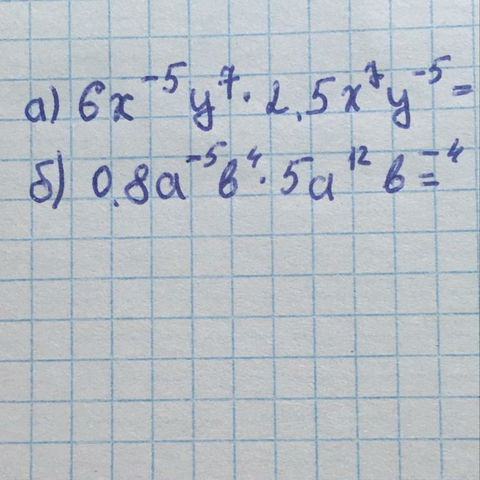 а) 6x⁻⁵y⁷·2,5x⁷y⁻⁵=
б) 0,8a⁻⁵b⁴·5a¹²b⁻⁴=